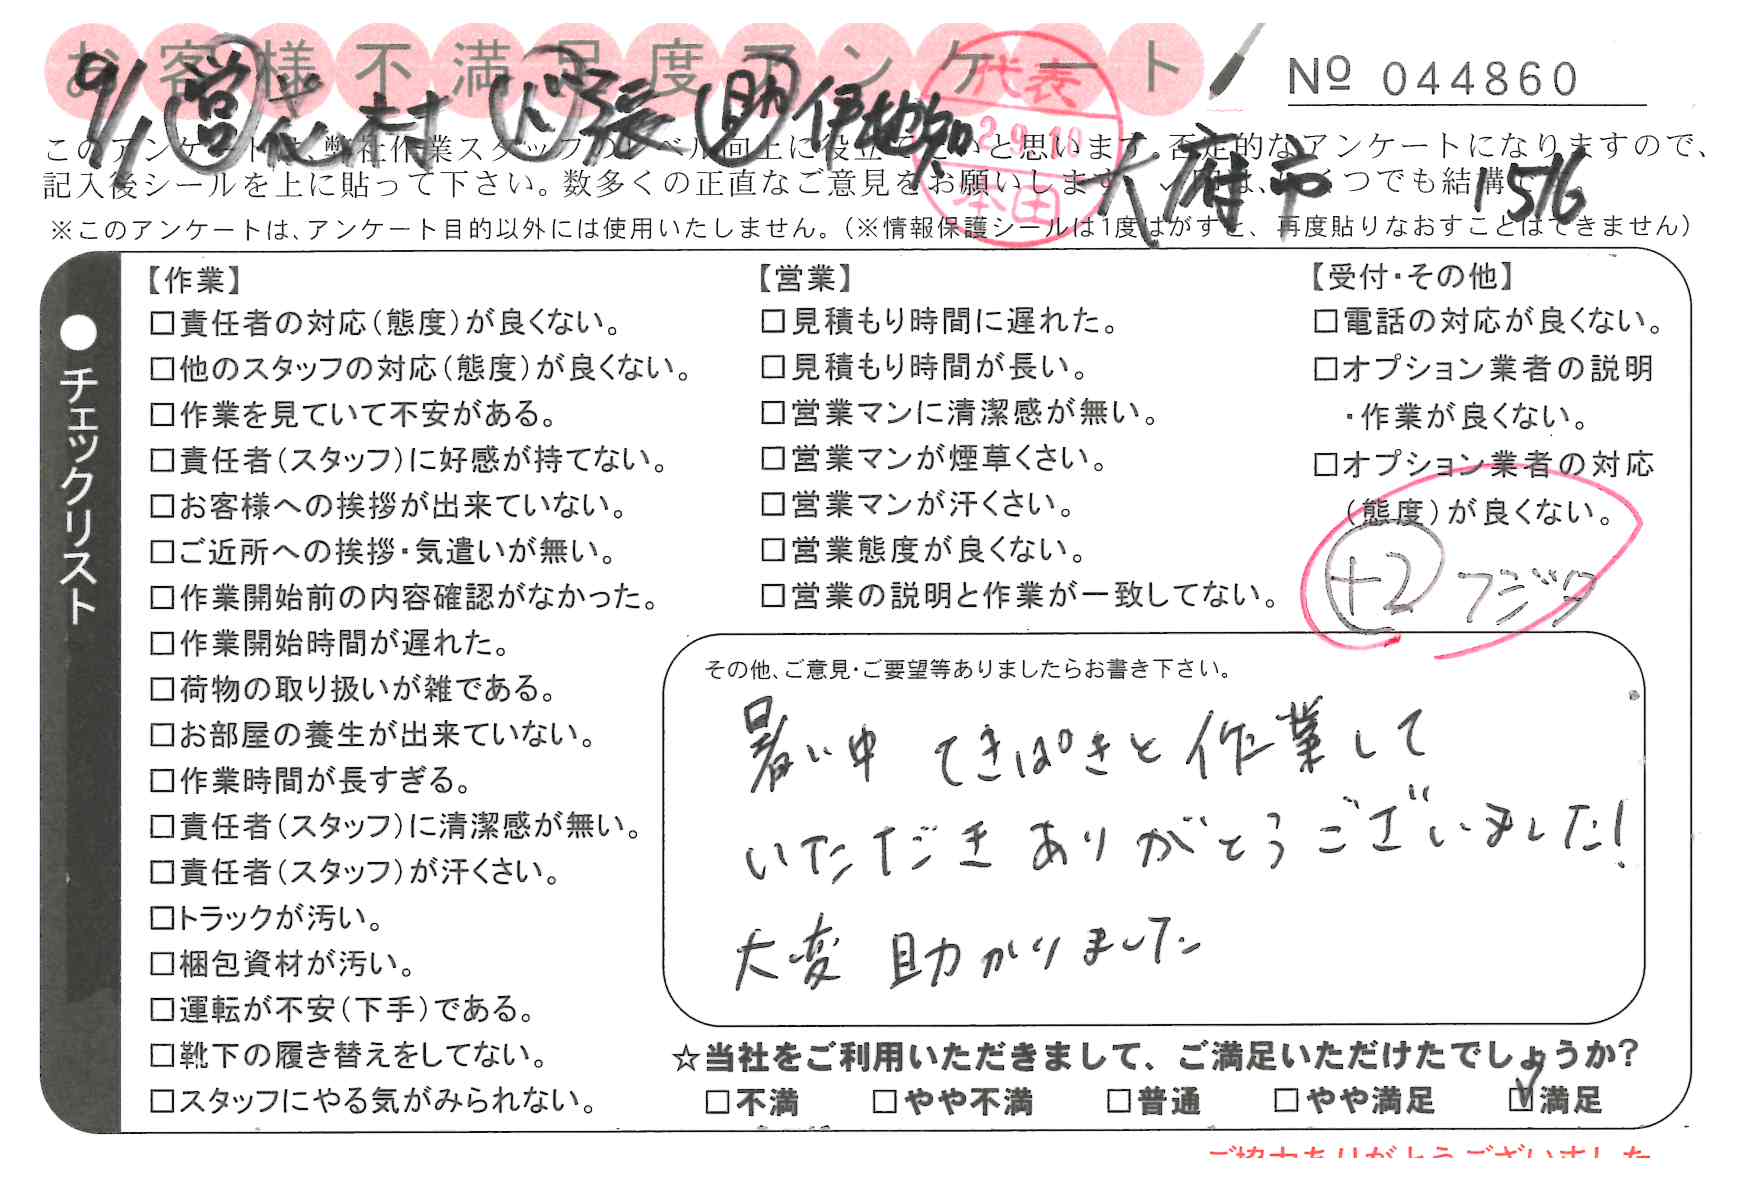 お客様不満足度アンケート
№ 044860
9/1 営 志村 小張 助 伊地知
代表
2.9.10
本田
大府市 156
このアンケートは、弊社作業スタッフのレベル向上に役立てたいと思います。否定的なアンケートになりますので、
記入後シールを上に貼って下さい。数多くの正直なご意見をお願いします。✓印は、いくつでも結構です。
※このアンケートは、アンケート目的以外には使用いたしません。（※情報保護シールは1度はがすと、再度貼りなおすことはできません）
●チェックリスト
【作業】
□責任者の対応（態度）が良くない。
□他のスタッフの対応（態度）が良くない。
□作業を見ていて不安がある。
□責任者（スタッフ）に好感が持てない。
□お客様への挨拶が出来ていない。
□ご近所への挨拶・気遣いが無い。
□作業開始前の内容確認がなかった。
□作業開始時間が遅れた。
□荷物の取り扱いが雑である。
□お部屋の養生が出来ていない。
□作業時間が長すぎる。
□責任者（スタッフ）に清潔感が無い。
□責任者（スタッフ）が汗くさい。
□トラックが汚い。
□梱包資材が汚い。
□運転が不安（下手）である。
□靴下の履き替えをしてない。
□スタッフにやる気がみられない。
【営業】
□見積もり時間に遅れた。
□見積もり時間が長い。
□営業マンに清潔感が無い。
□営業マンが煙草くさい。
□営業マンが汗くさい。
□営業態度が良くない。
□営業の説明と作業が一致してない。
【受付・その他】
□電話の対応が良くない。
□オプション業者の説明
・作業が良くない。
□オプション業者の対応
（態度）が良くない。
+2 フジタ
その他、ご意見・ご要望等ありましたらお書き下さい。
暑い中 てきぱきと作業して
いただき ありがとうございました!
大変 助かりました
☆当社をご利用いただきまして、ご満足いただけたでしょうか？
□不満 □やや不満 □普通 □やや満足 ☑満足
ご協力ありがとうございました